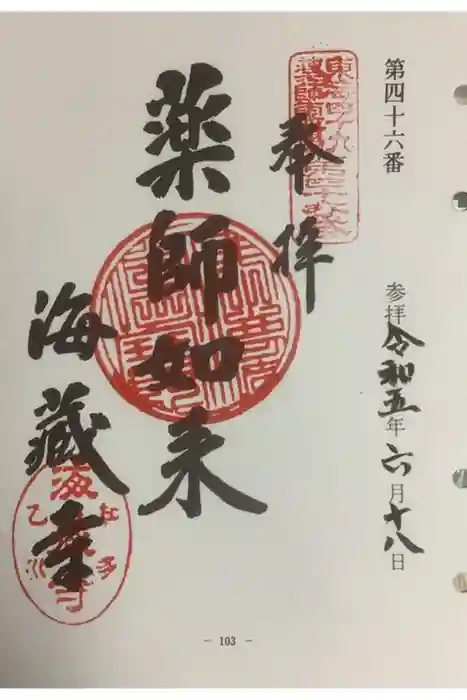 第四十六番
参拝令和五年六月十八日
奉拝
薬師如来
海蔵寺
- 103 -